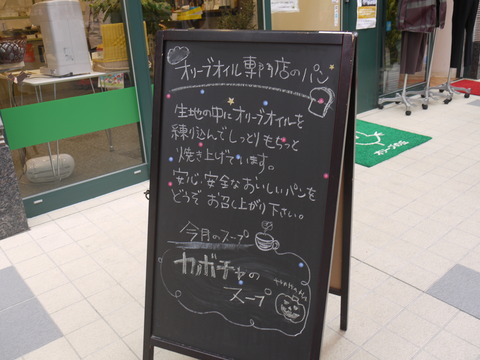 オリーブオイル専門店のパン
生地の中にオリーブオイルを
練り込んでしっとりもちっと
焼き上げています。
安心・安全なおいしいパンを
どうぞお召し上がり下さい。
今月のスープ
カボチャの
スープ